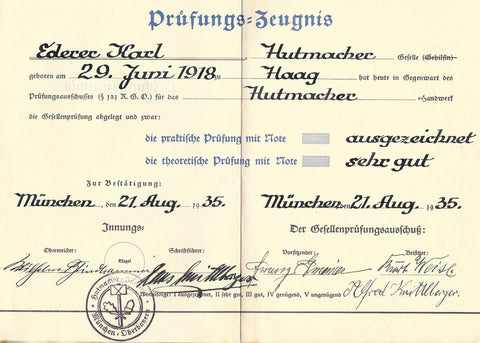 Prüfungs=Zeugnis
Ederer Karl, Hutmacher Geselle (Gehilfin)
geboren am 29. Juni 1918 zu Haag hat heute in Gegenwart des
Prüfungsausschusses (§ 131 R.G.O.) für das Hutmacher =Handwerk
die Gesellenprüfung abgelegt und zwar:
die praktische Prüfung mit Note ausgezeichnet
die theoretische Prüfung mit Note sehr gut
Zur Bestätigung:
München, den 21. Aug. 1935. München, den 21. Aug. 1935.
Innungs- Der Gesellenprüfungsausschuß:
Obermeister: Siegel Schriftführer: Vorsitzender: Beisitzer:
Wilhelm Hans Franz Kurt Weise
I ausgezeichnet, II sehr gut, III gut, IV genügend, V ungenügend
Alfred
München-Oberbayern